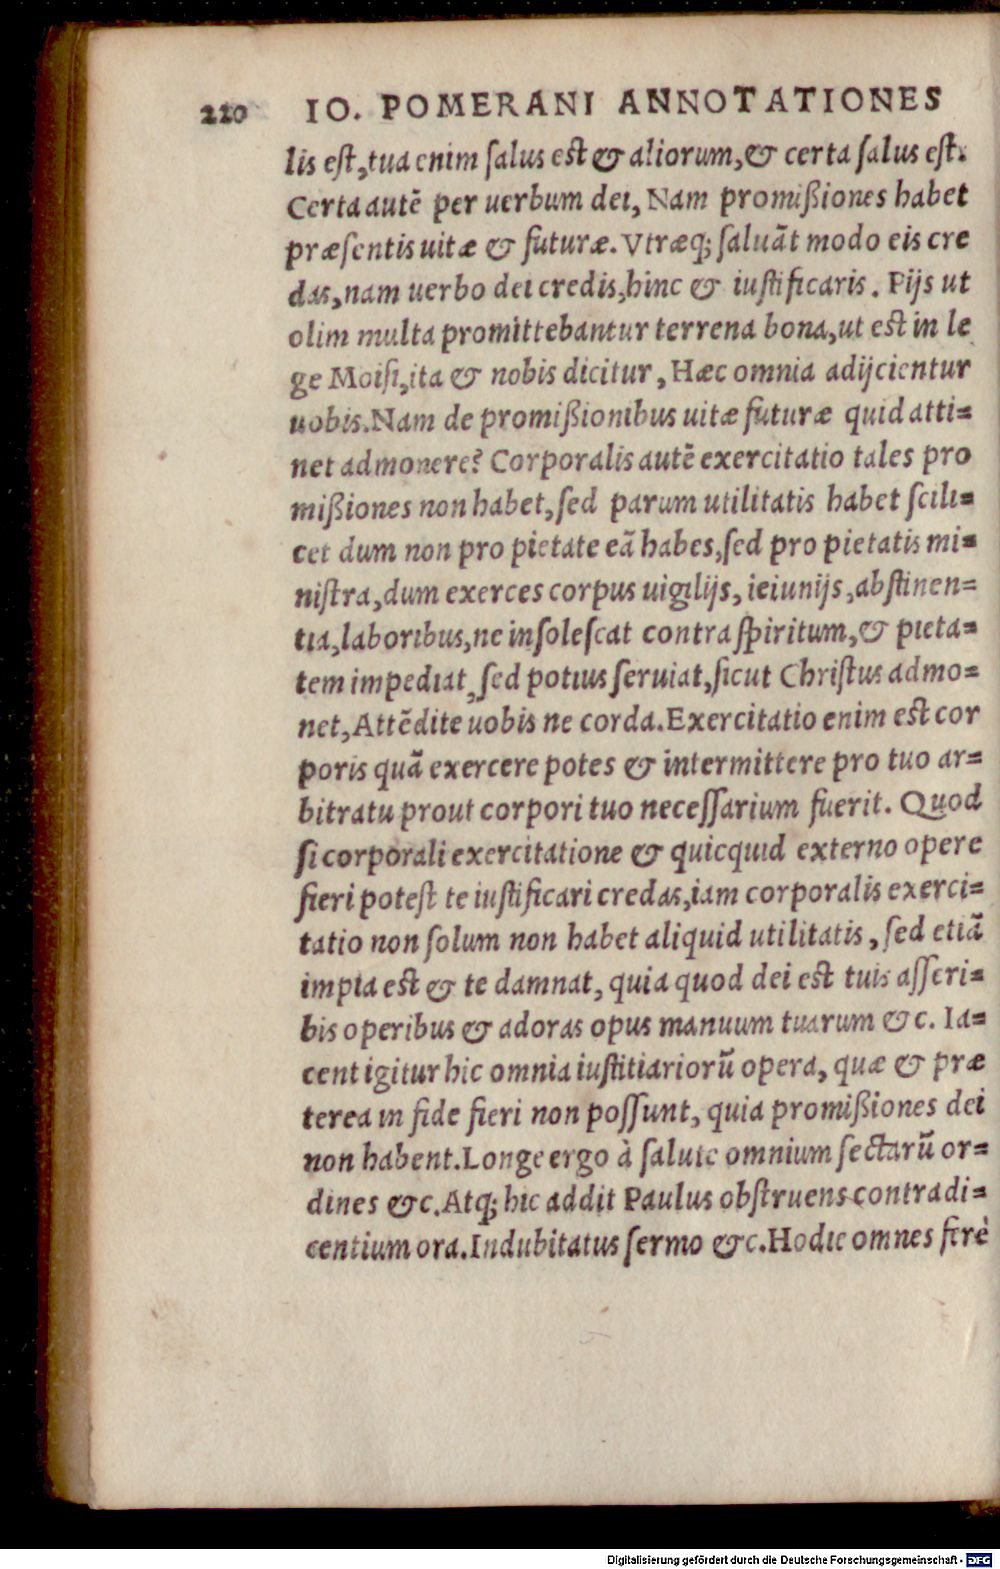 220 IO. POMERANI ANNOTATIONES
lis eſt, tua enim ſalus est & aliorum, & certa ſalus eſt.
Certa autẽ per uerbum dei, Nam promißiones habet
præſentis uitæ & futuræ. Vtræq; ſaluãt modo eis cre
das, nam uerbo dei credis, hinc & iuſtificaris. Pijs ut
olim multa promittebantur terrena bona, ut est in le
ge Moiſi, ita & nobis dicitur, Hæc omnia adijcientur
uobis. Nam de promißionibus uitæ futuræ quid atti=
net admonere? Corporalis autẽ exercitatio tales pro
mißiones non habet, ſed parum utilitatis habet ſcili=
cet dum non pro pietate eã habes, ſed pro pietatis mi=
niſtra, dum exerces corpus uigilijs, ieiunijs, abſtinen=
tia, laboribus, ne inſoleſcat contra ſpiritum, & pieta=
tem impediat, ſed potius ſeruiat, ſicut Chriſtus admo=
net, Attẽdite uobis ne corda. Exercitatio enim est cor
poris quã exercere potes & intermittere pro tuo ar=
bitratu prout corpori tuo neceſſarium fuerit. Quod
ſi corporali exercitatione & quicquid externo opere
fieri poteſt te iuſtificari credas, iam corporalis exerci=
tatio non ſolum non habet aliquid utilitatis, ſed etiã
impia est & te damnat, quia quod dei est tuis aſſcri=
bis operibus & adoras opus manuum tuarum &c. Ia=
cent igitur hic omnia iuſtitiariorũ opera, quæ & præ
terea in fide fieri non poſſunt, quia promißiones dei
non habent. Longe ergo à ſalute omnium ſectarũ or=
dines &c. Atq; hic addit Paulus obſtruens contradi=
centium ora. Indubitatus ſermo &c. Hodie omnes ferè
Digitalisierung gefördert durch die Deutsche Forschungsgemeinschaft - DFG